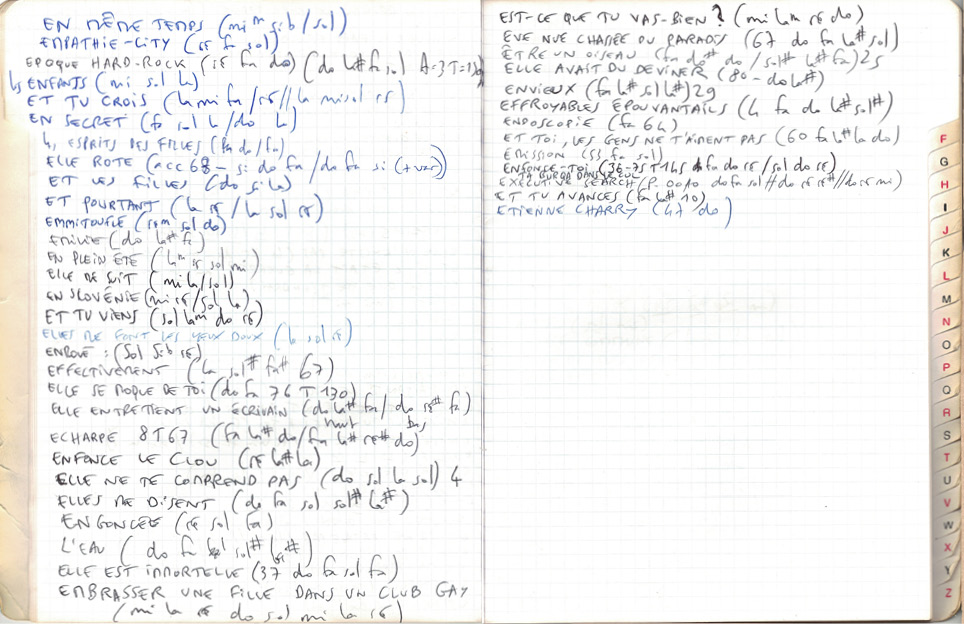 EN MÊME TEMPS (mi m si b / sol)
EMPATHIE-CITY (ré fa sol)
EPOQUE HARD-ROCK (ré fa do) (do la# fa sol A=3 T=130)
ENFANTS (mi sol la)
ET TU CROIS (la mi fa / ré // la mi sol ré)
EN SECRET (fa sol la / do la)
ESPRITS DES FILLES (la do / fa)
ELLE ROTE (acc 68 - si do fa / do fa si (+ var)
ET LES FILLES (do si la)
ET POURTANT (la ré / la sol ré)
EMMITOUFLÉ (ré m sol do)
EMILIE (do la# fa)
EN PLEIN ÉTÉ (la m ré sol mi)
ELLE ME SUIT (mi la / sol)
EN SLOVÉNIE (mi ré / sol la)
ET TU VIENS (sol lam do ré)
ELLES ME FONT LES YEUX DOUX (la sol ré)
ENROUÉ : (Sol Sib ré)
EFFECTIVEMENT (la sol# fa# 67)
ELLE SE MOQUE DE TOI (do fa 76 T 130)
ELLE ENTRETIENT UN ÉCRIVAIN (do la# fa / do ré# fa)
ECHARPE 8T67 (fa la# do / fa haut la# ré# do) bas
ENFONCE LE CLOU (ré la# la)
ELLE NE TE COMPREND PAS (do sol la sol) 4
ELLES ME DISENT (do fa sol sol# la#)
ENGONCÉE (ré sol fa)
L'EAU (do fa sol# la#)
ELLE EST IMMORTELLE (37 do fa sol fa)
EMBRASSER UNE FILLE DANS UN CLUB GAY
(mi la ré do sol mi la ré)
F
G
H
I
J
K
L
M
N
O
P
Q
R
S
T
U
V
W
X
Y
Z
EST-CE QUE TU VAS-BIEN ? (mi lam ré do)
EVE NUE CHASSÉE DU PARADIS (67 do fa la# sol)
ÊTRE UN OISEAU (fa do# / sol la# fa) 25
ELLE AVAIT DU DEVINER (80 - do la#)
ENVIEUX (fa la# sol la#) 29
EFFROYABLES ÉPOUVANTAILS (4 fa do la# sol#)
ENDOSCOPIE (fa 64)
ET TOI, LES GENS NE T'AIMENT PAS (60 fa la# la do)
EMISSION (55 fa sol)
ENFONCE-TOI (36-35 T145 fa do ré / sol do ré)
TA BURQA DANS L'CUL
EXECUTIVE SEARCH (P. 0010 do fa sol # do ré ré# // do ré mi)
ET TU AVANCES (fa la# 10)
ETIENNE CHARRY (47 do)